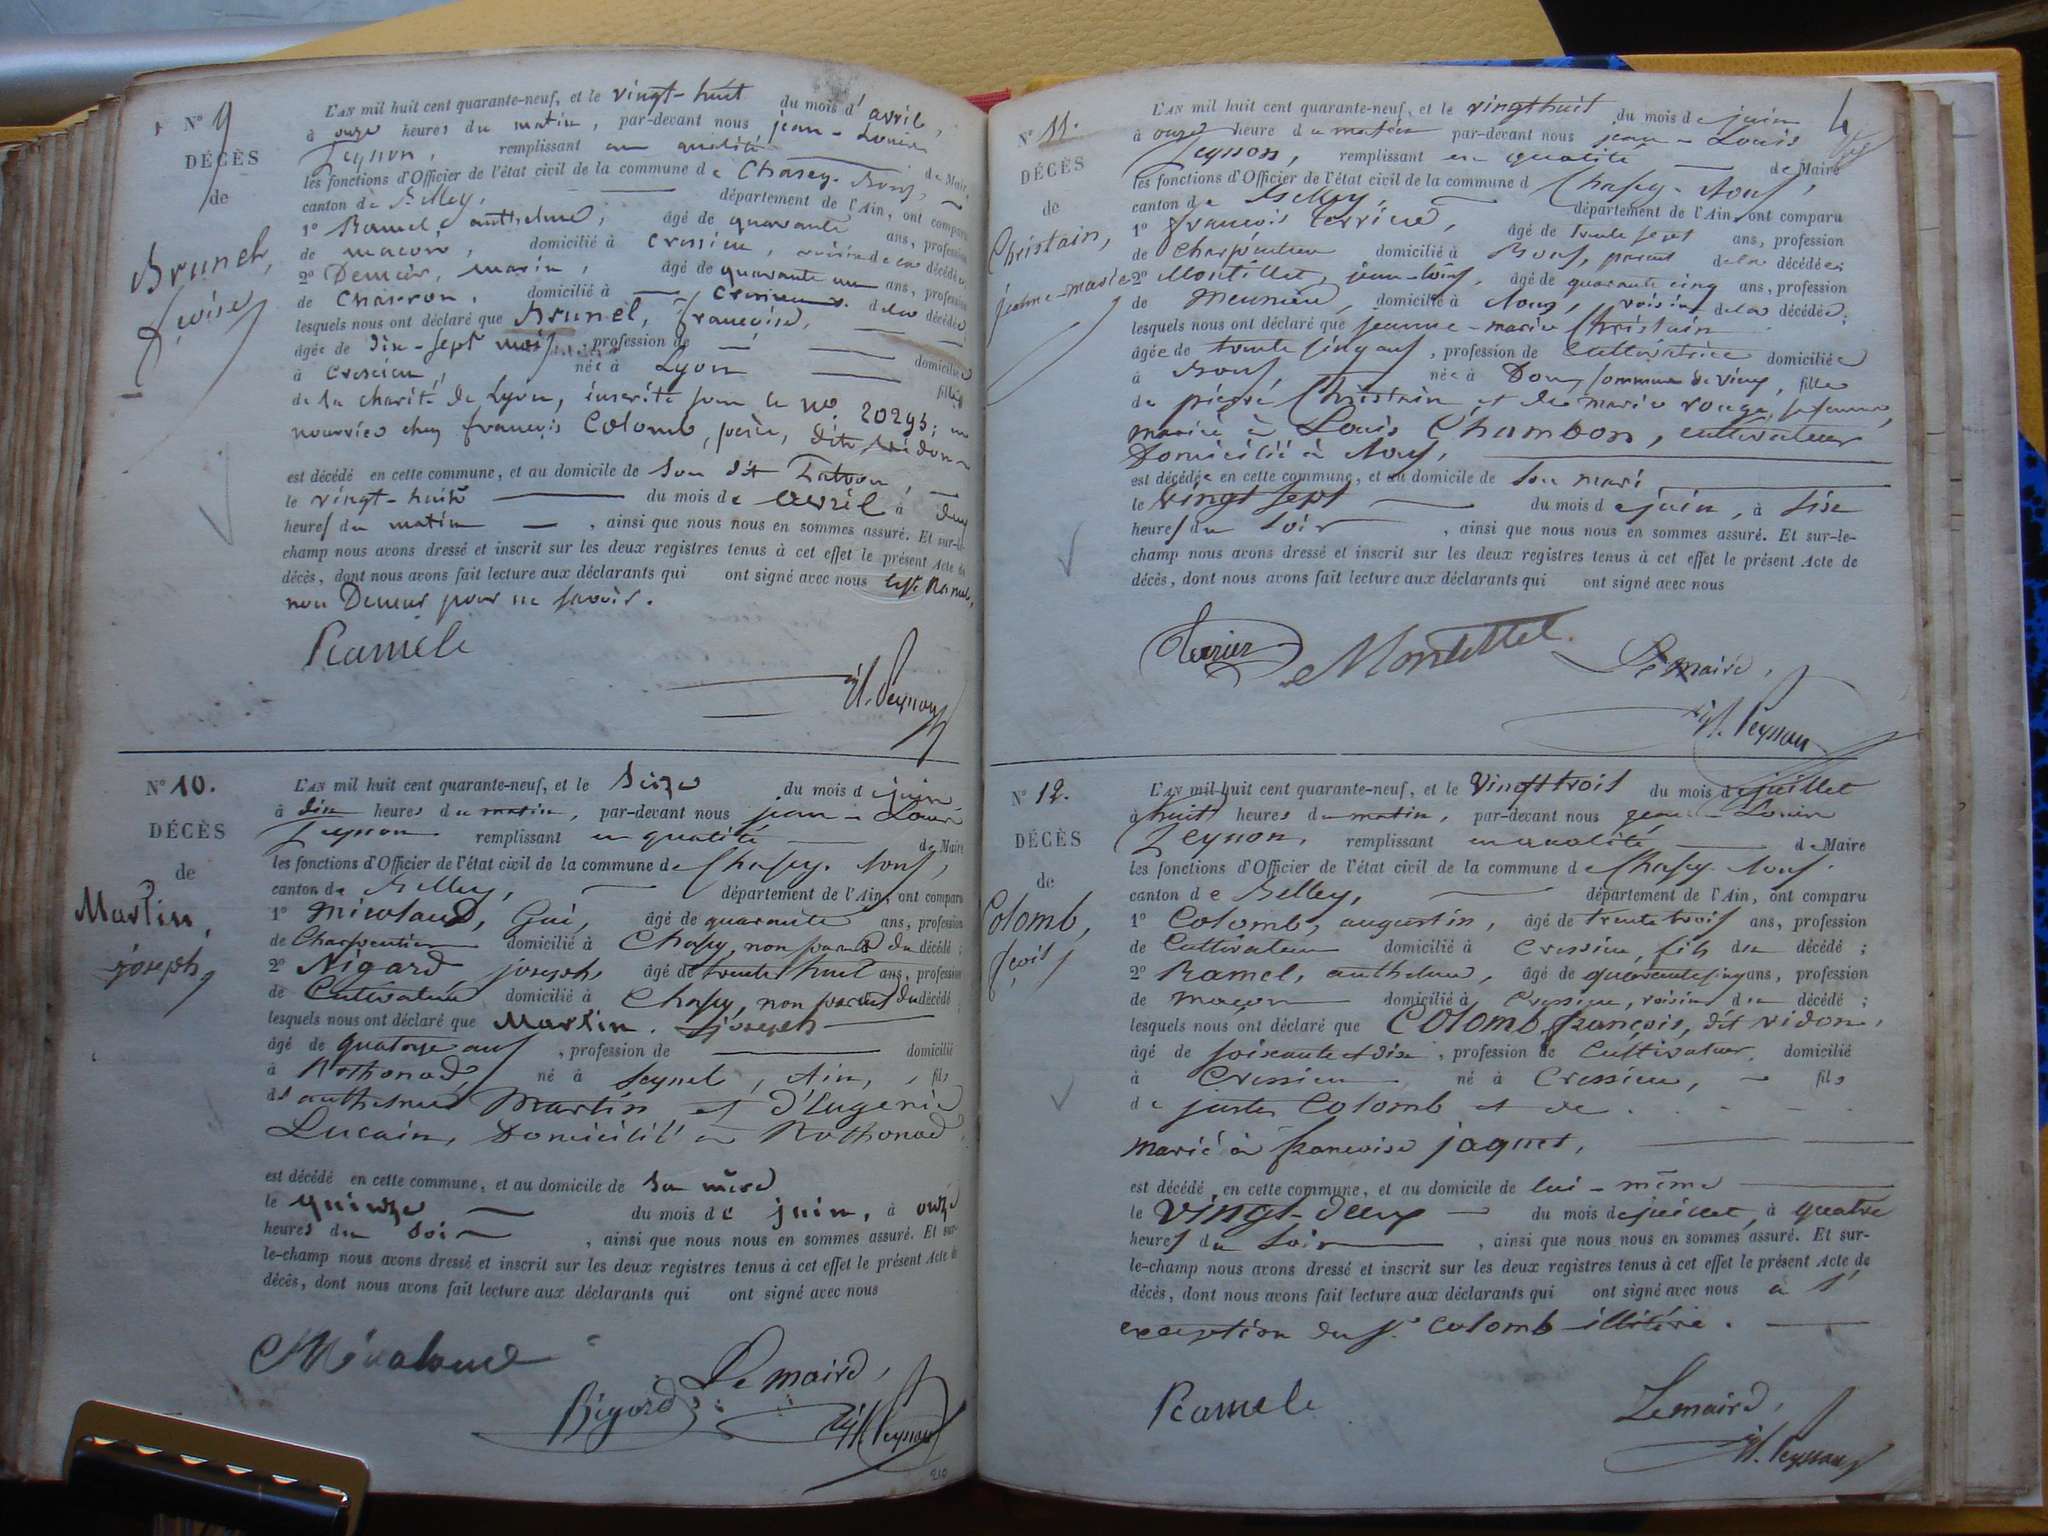 N° 9
DÉCÈS
de
Brunel,
L'AN mil huit cent quarante-neuf, et le vingt-huit du mois d'avril,
à onze heures du matin, par-devant nous jean-Louis
Peysson, remplissant en qualité de Maire
les fonctions d'Officier de l'état civil de la commune de Chasey-Bons,
canton de Belley, département de l'Ain, ont comparu
1° Ramel, anthelme, âgé de quarante ans, profession
de macon, domicilié à Cressieu, voisin de la décédée;
2° Demeur, marin, âgé de quarante un ans, profession
de Charron, domicilié à Cressieu, de la décédée
lesquels nous ont déclaré que Brunel, françoise,
âgée de dix-sept mois, profession de domiciliée
à Cressieu, née à Lyon fille
de la charité de Lyon, inscrite sous le n° 20295; en
nourrice chez françois Colomb, père, dit vidon
est décédé en cette commune, et au domicile de son dit Patron,
le vingt-huit du mois de avril à deux
heures du matin, ainsi que nous nous en sommes assuré. Et sur-le-
champ nous avons dressé et inscrit sur les deux registres tenus à cet effet le présent Acte de
décès, dont nous avons fait lecture aux déclarants qui ont signé avec nous Ramel,
non Demeur pour ne savoir.
Ramele
Jh. Peysson
N° 10.
DÉCÈS
de
Martin,
joseph,
L'AN mil huit cent quarante-neuf, et le Seize du mois de juin,
à dix heures du matin, par-devant nous jean-Louis
Peysson remplissant en qualité de Maire
les fonctions d'Officier de l'état civil de la commune de Chasey-Bons,
canton de Belley, département de l'Ain, ont comparu
1° Micolaud, Gui, âgé de quarante ans, profession
de Charpentier domicilié à Chasey, non parent du décédé;
2° joseph, âgé de trente huit ans, profession
de Cultivateur domicilié à Chasey, non parent du décédé
lesquels nous ont déclaré que Martin, joseph
âgé de quatorze ans, profession de domicilié
à Rothonod, né à Seyssel, Ain, fils
de anthelme Martin, et d'Eugénie
Lucain, Domicilié à Rothonod,
est décédé en cette commune, et au domicile de sa mère
le quinze du mois de juin, à onze
heures du soir, ainsi que nous nous en sommes assuré. Et sur-
le-champ nous avons dressé et inscrit sur les deux registres tenus à cet effet le présent Acte de
décès, dont nous avons fait lecture aux déclarants qui ont signé avec nous
Micolaud
Le maire,
Bigard
Jh. Peysson
210
N° 11.
DÉCÈS
de
Christain,
jeanne-marie
L'AN mil huit cent quarante-neuf, et le vingt huit du mois de juin
à onze heure du matin par-devant nous jean-Louis
Peysson, remplissant en qualité de Maire
les fonctions d'Officier de l'état civil de la commune d Chasey-Bons,
canton de Belley, département de l'Ain, ont comparu
1° françois Terrier, âgé de trente sept ans, profession
de Charpentier domicilié à Bons, parent de la décédée;
2° Montillet, jean-louis, âgé de quarante cinq ans, profession
de Meunier, domicilié à Bons, voisin de la décédée;
lesquels nous ont déclaré que jeanne-marie Christain
âgée de trente cinq ans, profession de Cultivatrice domiciliée
à Bons, née à Don, commune de Vieu, fille
de pierre Christain et de marie rouge, sa femme,
mariée à Louis Chambon, cultivateur
Domicilié à Bons,
est décédée en cette commune, et au domicile de son mari
le vingt sept du mois de juin, à sise
heures du soir, ainsi que nous nous en sommes assuré. Et sur-le-
champ nous avons dressé et inscrit sur les deux registres tenus à cet effet le présent Acte de
décès, dont nous avons fait lecture aux déclarants qui ont signé avec nous
Terrier Montillet
Le maire,
Jh. Peysson
N° 12.
DÉCÈS
de
Colomb,
fçois
L'AN mil huit cent quarante-neuf, et le Vingt trois du mois de juillet
à huit heures du matin, par-devant nous jean-Louis
Peysson, remplissant en qualité de Maire
les fonctions d'Officier de l'état civil de la commune de Chasey-Bons.
canton de Belley, département de l'Ain, ont comparu
1° Colomb, augustin, âgé de trente trois ans, profession
de Cultivateur domicilié à Cressieu, fils du décédé;
2° Ramel, anthelme, âgé de quarante cinq ans, profession
de maçon domicilié à Cressieu, voisin du décédé;
lesquels nous ont déclaré que Colomb françois, dit vidon,
âgé de soixante et dix, profession de Cultivateur domicilié
à Cressieu né à Cressieu, fils
de juste Colomb et de
marié à françoise jaquet,
est décédé en cette commune, et au domicile de lui-même
le vingt-deux du mois de juillet, à quatre
heures du soir, ainsi que nous nous en sommes assuré. Et sur-
le-champ nous avons dressé et inscrit sur les deux registres tenus à cet effet le présent Acte de
décès, dont nous avons fait lecture aux déclarants qui ont signé avec nous à l'
exception du Sr. Colomb illitéré.
Ramele
Le maire,
Jh. Peysson